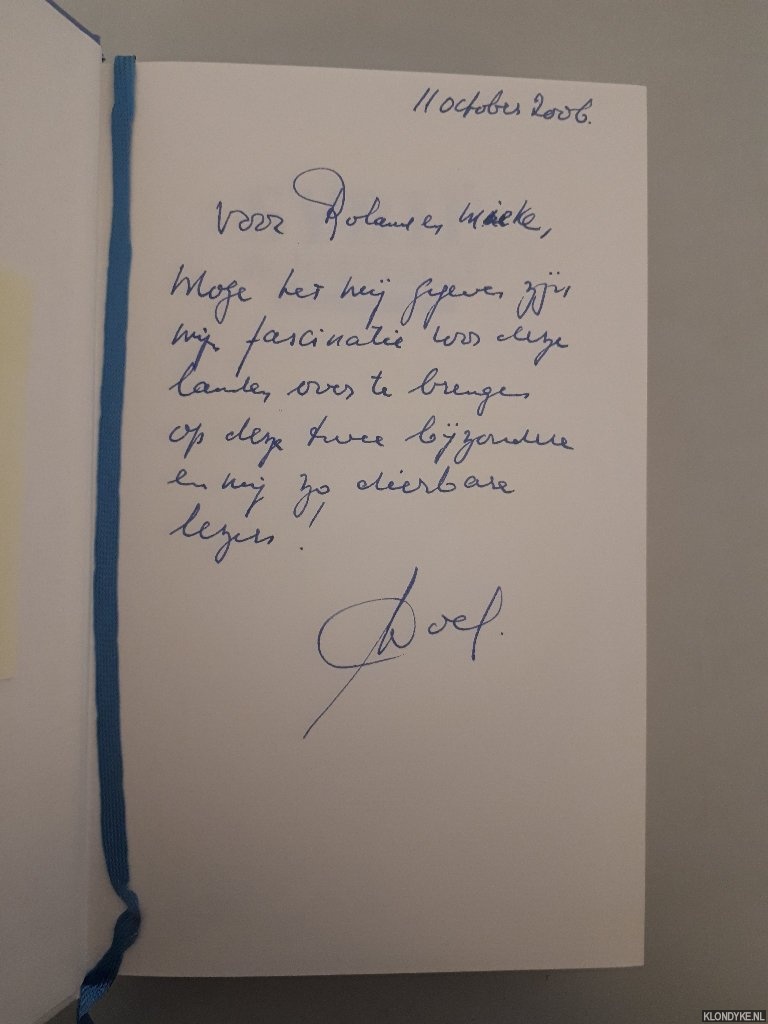 11 october 2006.
Voor Roland en Mieke,
Moge het mij gegeven zijn
mijn fascinatie voor deze
landen over te brengen
op deze twee bijzondere
en mij zo dierbare
lezers!
KLONDYKE.NL